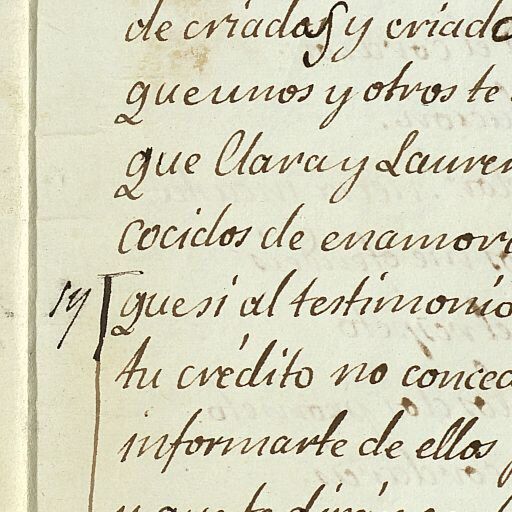 de criados y criado
que unos y otros te
que Clara y Lauren
cocidos de enamor
que si al testimonio
tu crédito no conced
informarte de ellos
y que te dirán